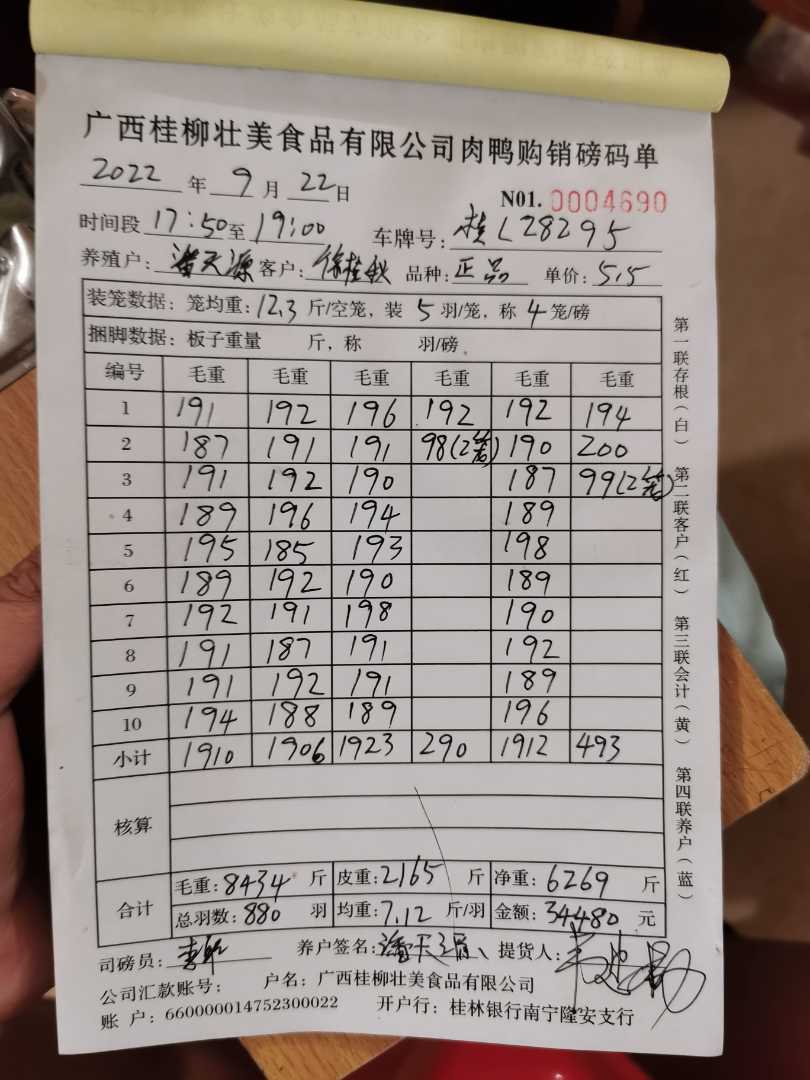 广西桂柳壮美食品有限公司肉鸭购销磅码单
2022 年 9 月 22 日 N01. 0004690
时间段 17:50 至 19:00 车牌号: 桂L28295
养殖户: 潘天源 客户: 徐桂秋 品种: 正品 单价: 5.5
装笼数据: 笼均重: 12.3 斤/空笼, 装 5 羽/笼, 称 4 笼/磅
捆脚数据: 板子重量 斤, 称 羽/磅
编号 毛重 毛重 毛重 毛重 毛重 毛重
1 191 192 196 192 192 194
2 187 191 191 98(2笼) 190 200
3 191 192 190 187 99(2笼)
4 189 196 194 189
5 195 185 193 198
6 189 192 190 189
7 192 191 198 190
8 191 187 191 192
9 191 192 191 189
10 194 188 189 196
小计 1910 1906 1923 290 1912 493
核算
合计 毛重: 8434 斤 皮重: 2165 斤 净重: 6269 斤
总羽数: 880 羽 均重: 7.12 斤/羽 金额: 34480 元
司磅员: 养户签名: 潘天源 提货人:
公司汇款账号: 户名: 广西桂柳壮美食品有限公司
账 户: 660000014752300022 开户行: 桂林银行南宁隆安支行
第一联存根(白) 第二联客户(红) 第三联会计(黄) 第四联养户(蓝)